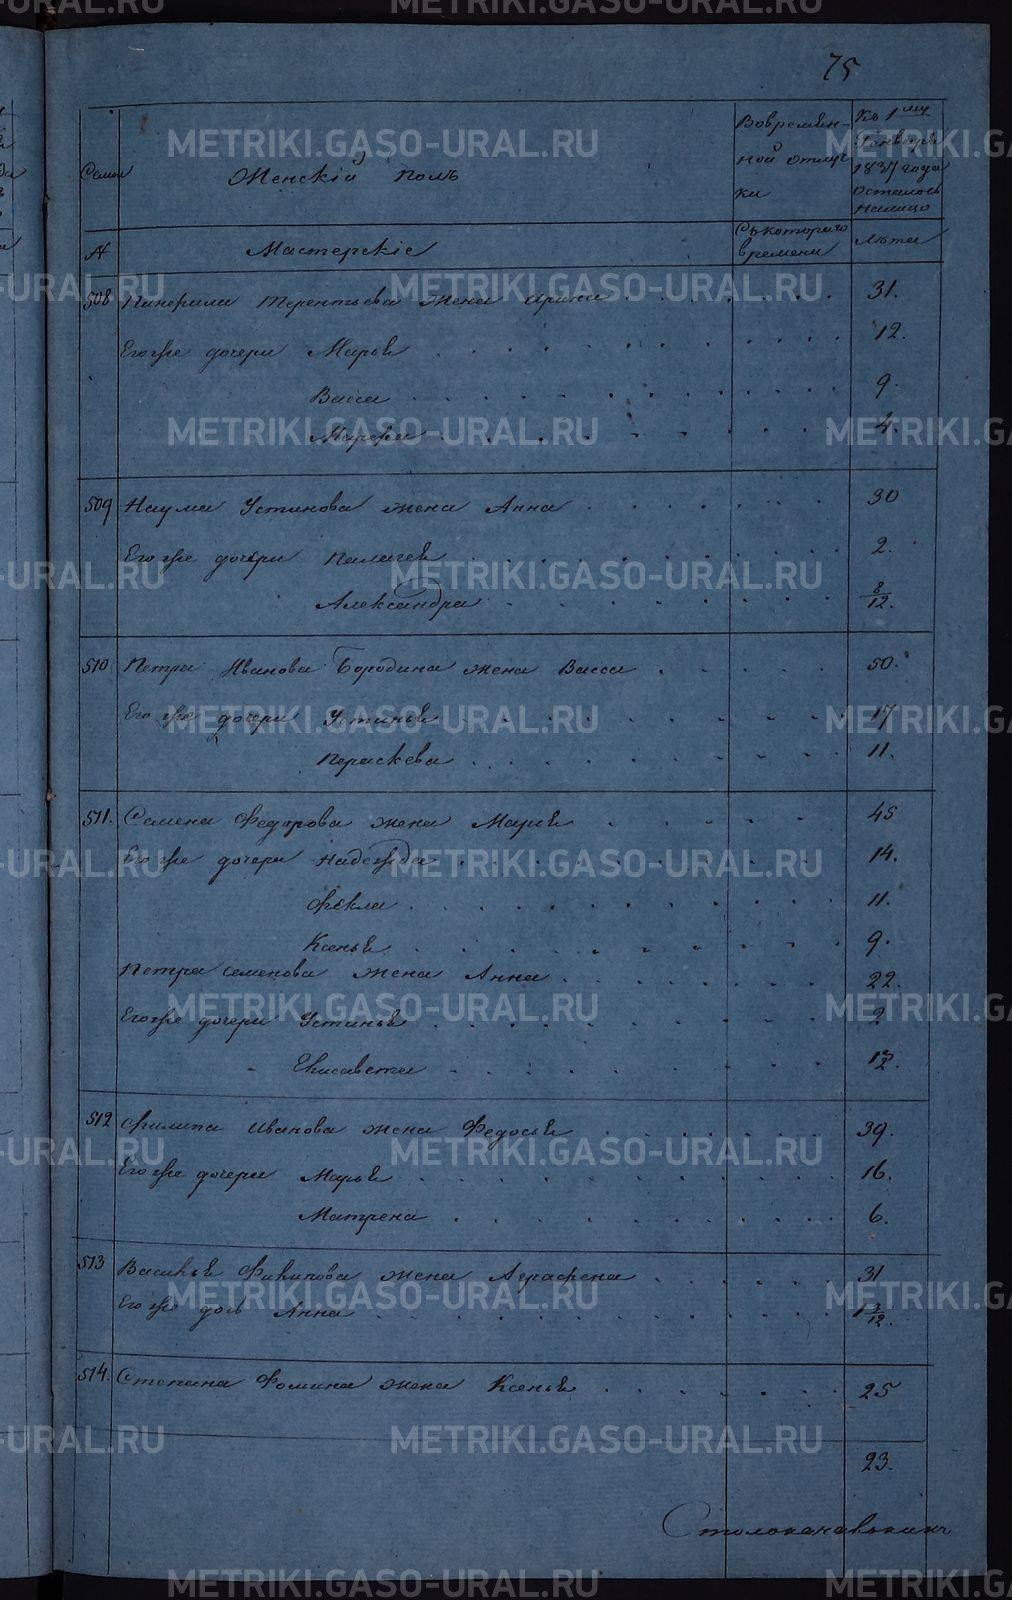 75
Семьи
Женскій полъ
Во времен-
ной отлуч
ки
Къ 1му
Генваря
1837 года
осталось
налицо
№
Мастерскіе
Съ котораго
времени
Лѣта
508 Панфила Терентьева жена Ирина 31.
Его же дочери Марья 12.
Васса 9.
Марфа 4.
509 Наума Устинова жена Анна 30
Его же дочери Палагея 2.
Александра 8/12.
510 Петра Иванова Бородина жена Васса 50.
Его же дочери Устинья 17
Пераскева 11.
511. Семена Федорова жена Марья 45
Его же дочери Надежда 14.
Фекла 11.
Ксенья 9.
Петра Семенова жена Анна 22.
Его же дочери Устинья 2
Елисавета
512 Филипа Иванова жена Федосья 39.
Его же дочери Марья 16.
Матрена 6.
513 Василья жена Аграфена 31
Его же дочь Анна 1 3/12.
514. Степана Фомина жена Ксенья 25
23.
METRIKI.GASO-URAL.RU